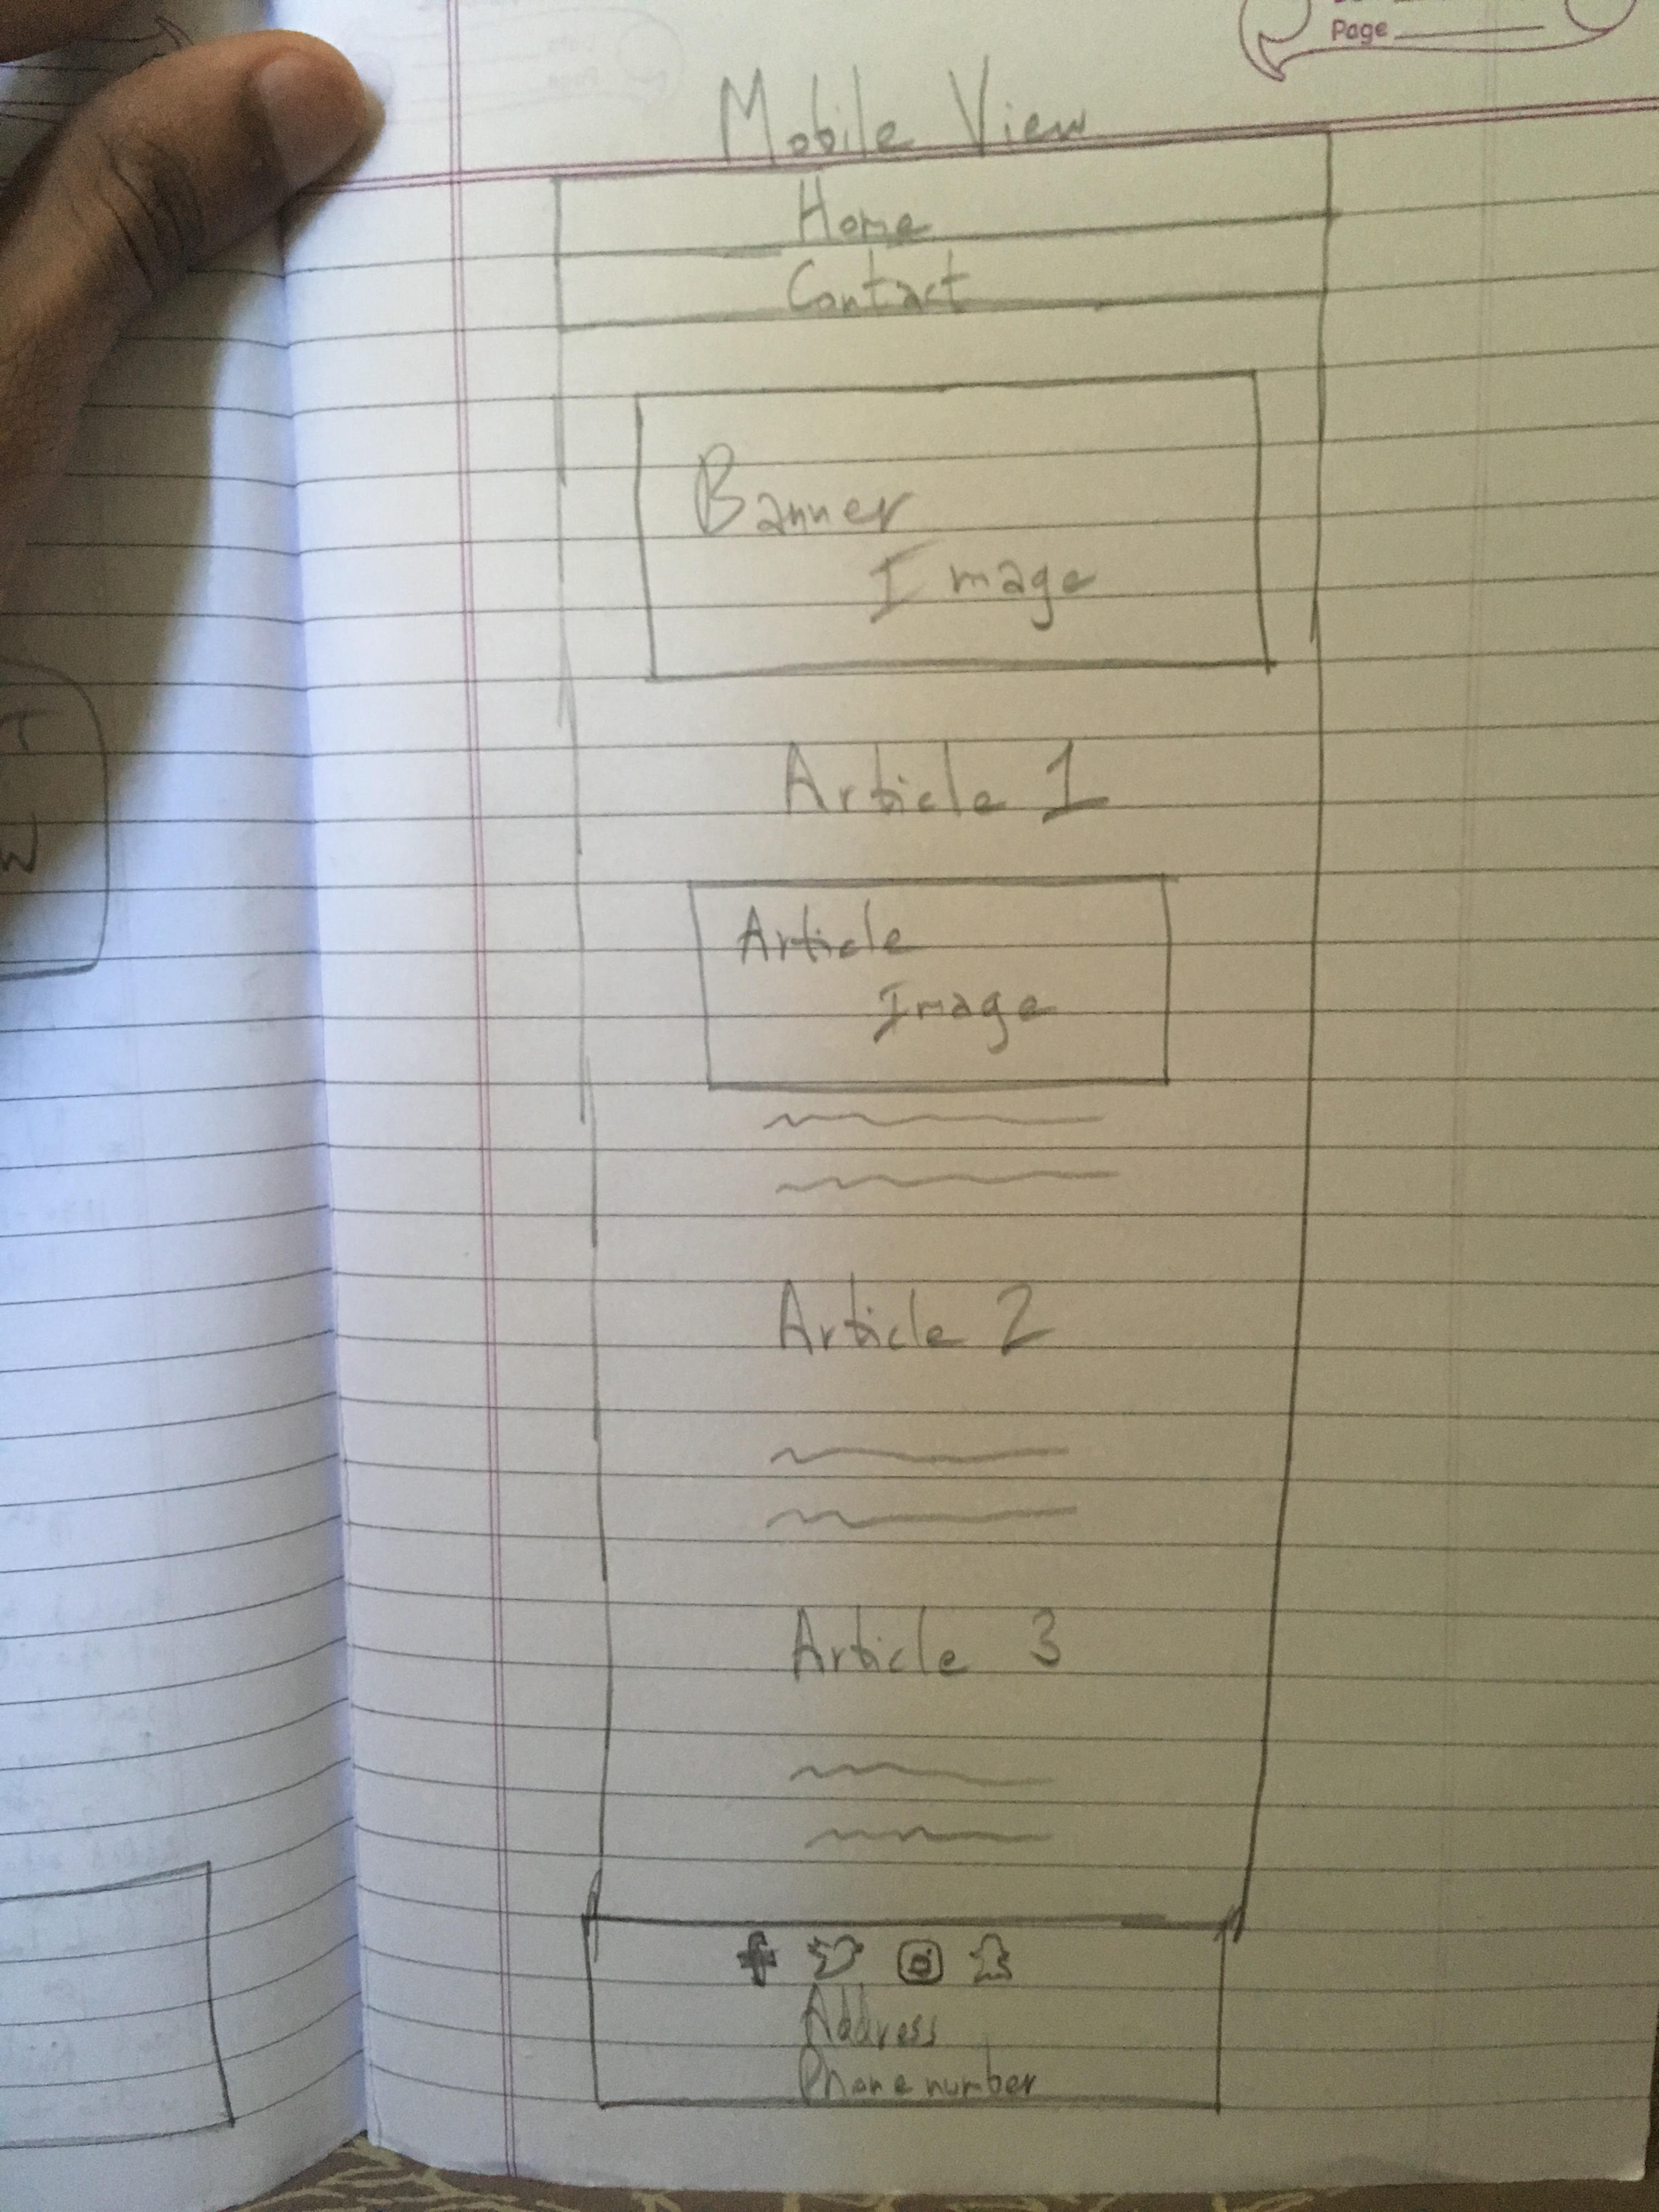 Page
Mobile View
Home
Contact
Banner
Image
Article 1
Article
Image
Article 2
Article 3
Address
Phone number